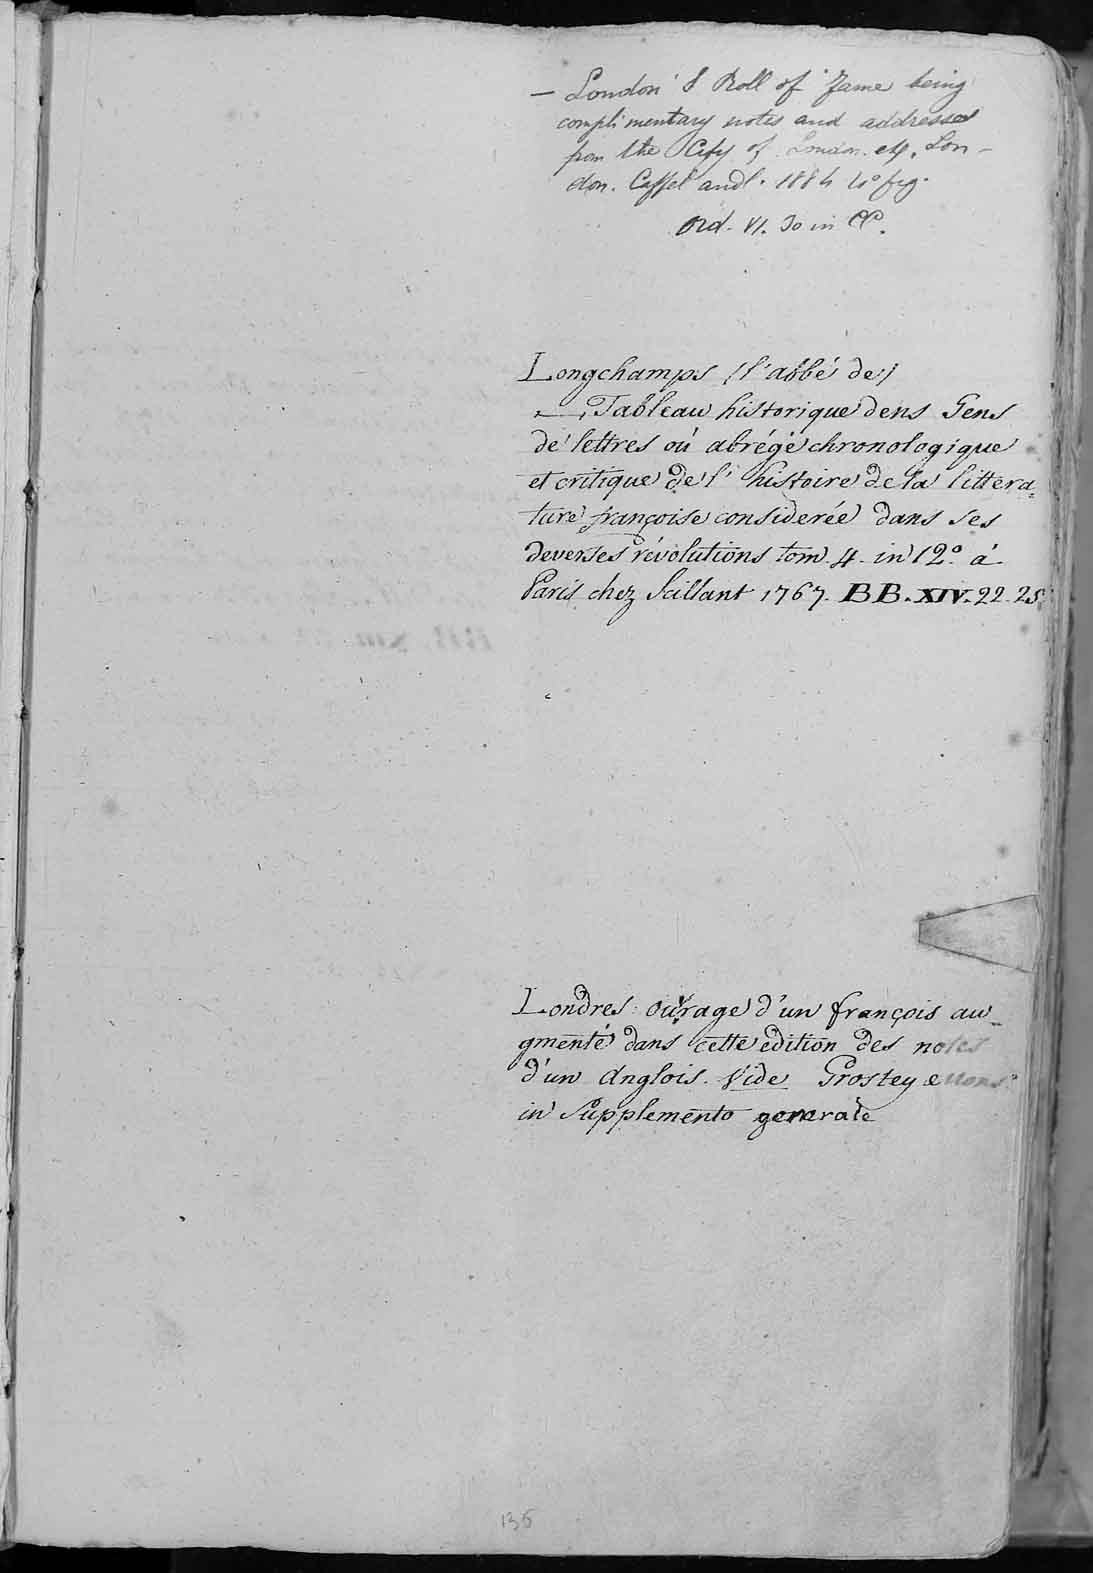 — London's Roll of Fame being
complimentary notes and addresses
from the City of London. etc. Lon-
don. Cassel and 1884 4° fig.
Ord. VI. 30 in
Longchamps (l'abbé de)
—, Tableau historique dens Gens
de lettres oú abrégé chronologique
et critique de l' histoire de la littera=
ture françoise considerée dans ses
deverses révolutions tom. 4 in 12° á
Paris chez Saillant 1767. BB. XIV. 22. 25.
Londres ouvrage d'un françois au_
gmenté dans cette edition des notes
d'un Anglois. Vide Grosley Mons.r
in Supplemento generale
136